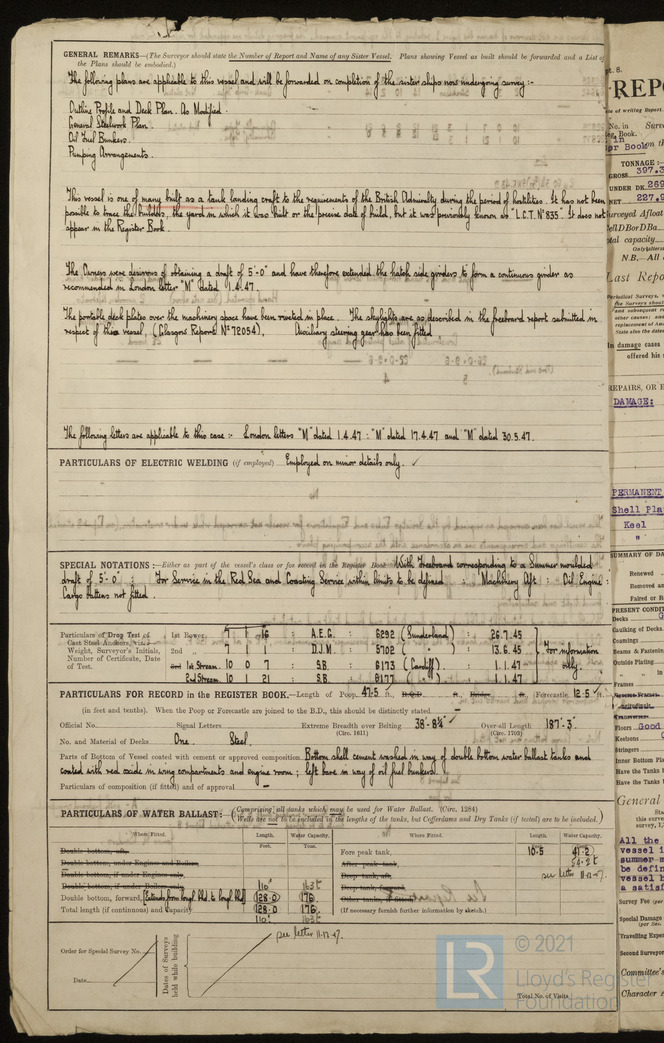 GENERAL REMARKS—(The Surveyor should state the Number of Report and Name of any Sister Vessel. Plans showing Vessel as built should be forwarded and a List of
the Plans should be embodied.)
The following plans are applicable to this vessel and will be forwarded on completion of the sister ships now undergoing survey :-
Outline Profile and Deck Plan. As Modified.
General Steelwork Plan
Oil Fuel Bunkers.
Pumping Arrangements.
This vessel is one of many built as a tank landing craft to the requirements of the British Admiralty during the period of hostilities. It has not been
possible to trace the builders, the yard in which it was built or the precise date of build, but it was previously known as "L.C.T. No 835". It does not
appear in the Register Book.
The Owners were desirous of obtaining a draft of 5'-0" and have therefore extended the hatch side girders to form a continuous girder as
recommended in London letter "M" dated 1.4.47.
The portable deck plates over the machinery space have been riveted in place. The skylights are as described in the freeboard report submitted in
respect of this vessel, (Glasgow Report No 72054), Auxiliary steering gear has been fitted
The following letters are applicable to this case :- London letters "M" dated 1.4.47 : "M" dated 17.4.47 and "M" dated 30.5.47.
PARTICULARS OF ELECTRIC WELDING (if employed) Employed on minor details only. ✓
SPECIAL NOTATIONS :—Either as part of the vessel's class or for record in the Register Book With freeboard corresponding to a Summer moulded
draft of 5'-0" : For Service in the Red Sea and Coasting Service within limits to be defined : Machinery Aft : Oil Engine :
Cargo battens not fitted.
Particulars of Drop Test of Cast Steel Anchors, viz.:— Weight, Surveyor's Initials, Number of Certificate, Date of Test.
1st Bower 7 1 16 : A.E.G. 6292 (Sunderland) : 26.7.45
2nd " 7 1 1 : D.J.M. 5702 ( " ) : 13.6.45
1st Stream. 10 0 7 : S.B. 8173 (Cardiff) : 1.1.47
2nd Stream. 10 1 21 : S.B. 8177 ( " ) : 1.1.47
For information only.
PARTICULARS FOR RECORD in the REGISTER BOOK.—Length of Poop 47.5 ft. Forecastle 12.5 ft.
(in feet and tenths). When the Poop or Forecastle are joined to the B.D., this should be distinctly stated
Official No. Signal Letters Extreme Breadth over Belting 38'-8¾" Over-all Length 187'-3"
(Circ. 1611) (Circ. 1703)
No. and Material of Decks One. Steel.
Parts of Bottom of Vessel coated with cement or approved composition Bottom shell cement washed in way of double bottom water ballast tanks and
coated with red oxide in wing compartments and engine room ; left bare in way of oil fuel bunkers.
Particulars of composition (if fitted) and of approval
PARTICULARS OF WATER BALLAST:—(Comprising all tanks which may be used for Water Ballast. (Circ. 1284)
Wells are not to be included in the lengths of the tanks, but Cofferdams and Dry Tanks (if tested) are to be included.)
Where Fitted. Length. Water Capacity. Where Fitted. Length. Water Capacity.
Feet. Tons.
Double bottom, aft, Fore peak tank, 10.5 41.2
Double bottom, under Engines and Boilers, After peak tank, 34.2t
Double bottom, if under Engines only, Deep tank, aft, see letter 11.12.47.
Double bottom, if under Boilers only, 110' 163t
Double bottom, forward, 128.0 176.
Total length (if continuous) and Capacity 128.0 176. (If necessary furnish further information by sketch.)
110' 163t
see letter 11.12.47.
Order for Special Survey No.
Date
Dates of Surveys held while building
Total No. of Visits
© 2021
Lloyd's Register
Foundation
LR
TONNAGE :
GROSS 397.3
UNDER DK 269
NET 227.9
Last Repo
DAMAGE:
PERMANENT
Shell Pla
Keel
"
SUMMARY OF DA
PRESENT CONDI
Decks
Caulking of Decks
Coamings
Beams & Fastenin
Outside Plating
Frames
Floors Good
Keelsons
Stringers
Inner Bottom Pla
Have the Tanks
Have the Tanks
General
All the
vessel i
summer m
be defin
vessel h
a satisf
Survey Fee
Special Damage
Travelling Expen
Second Surveyor
Committee's
Character